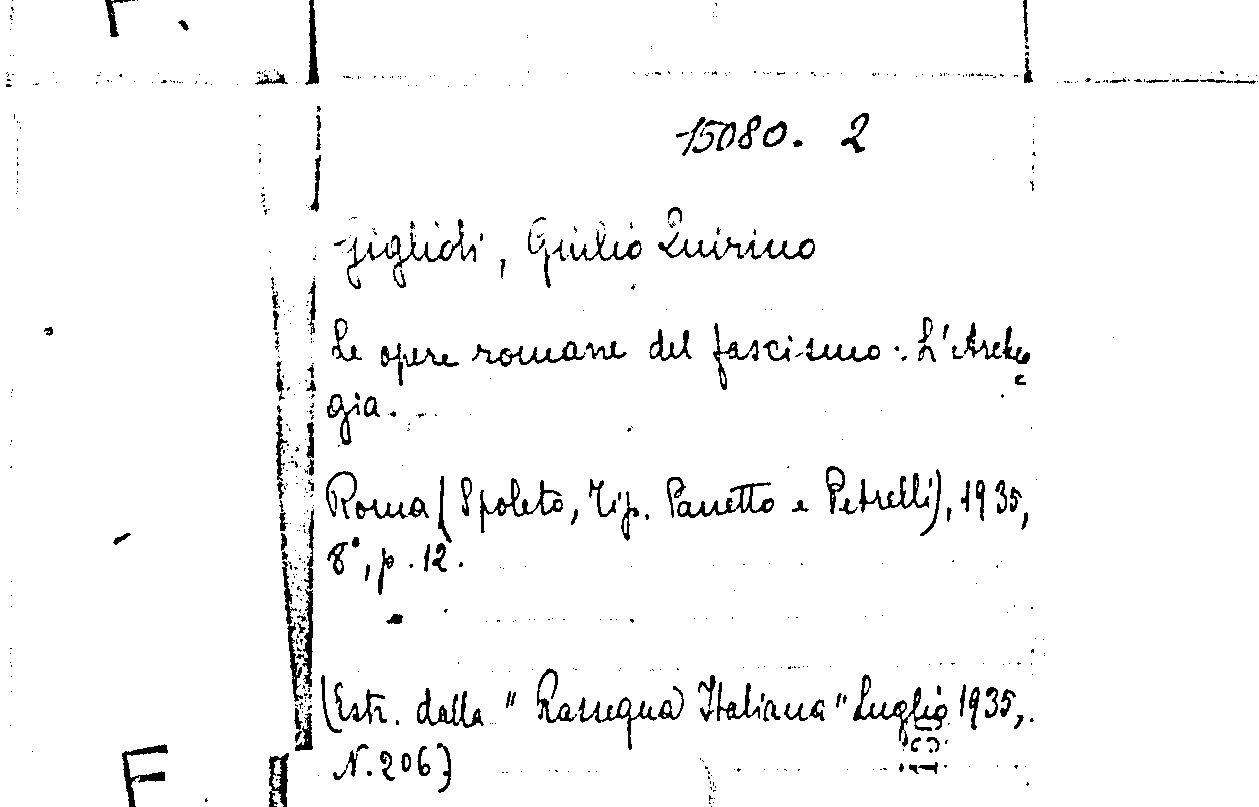 F.
15080. 2
Giglioli, Giulio Quirino
Le opere romane del fascismo. L'Archeo
gia.
Roma (Spoleto, Tip. Panetto e Petrelli), 1935,
8°, p. 12.
(Estr. dalla "Rassegna Italiana" Luglio 1935,
N. 206)
F